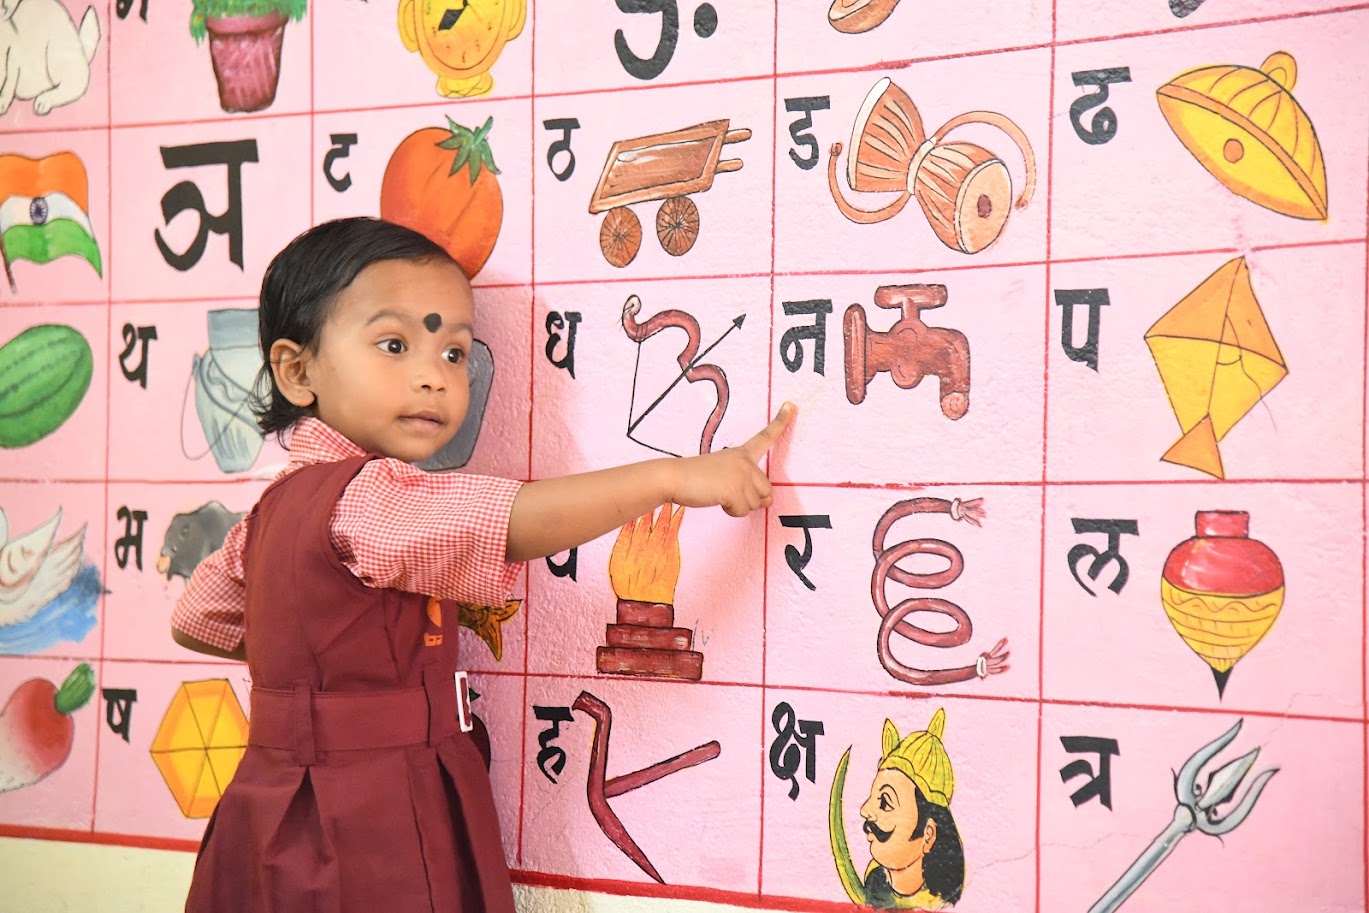 ङ
ञ ट ठ ड ढ
थ ध न प
भ र ल
ष ह क्ष त्र